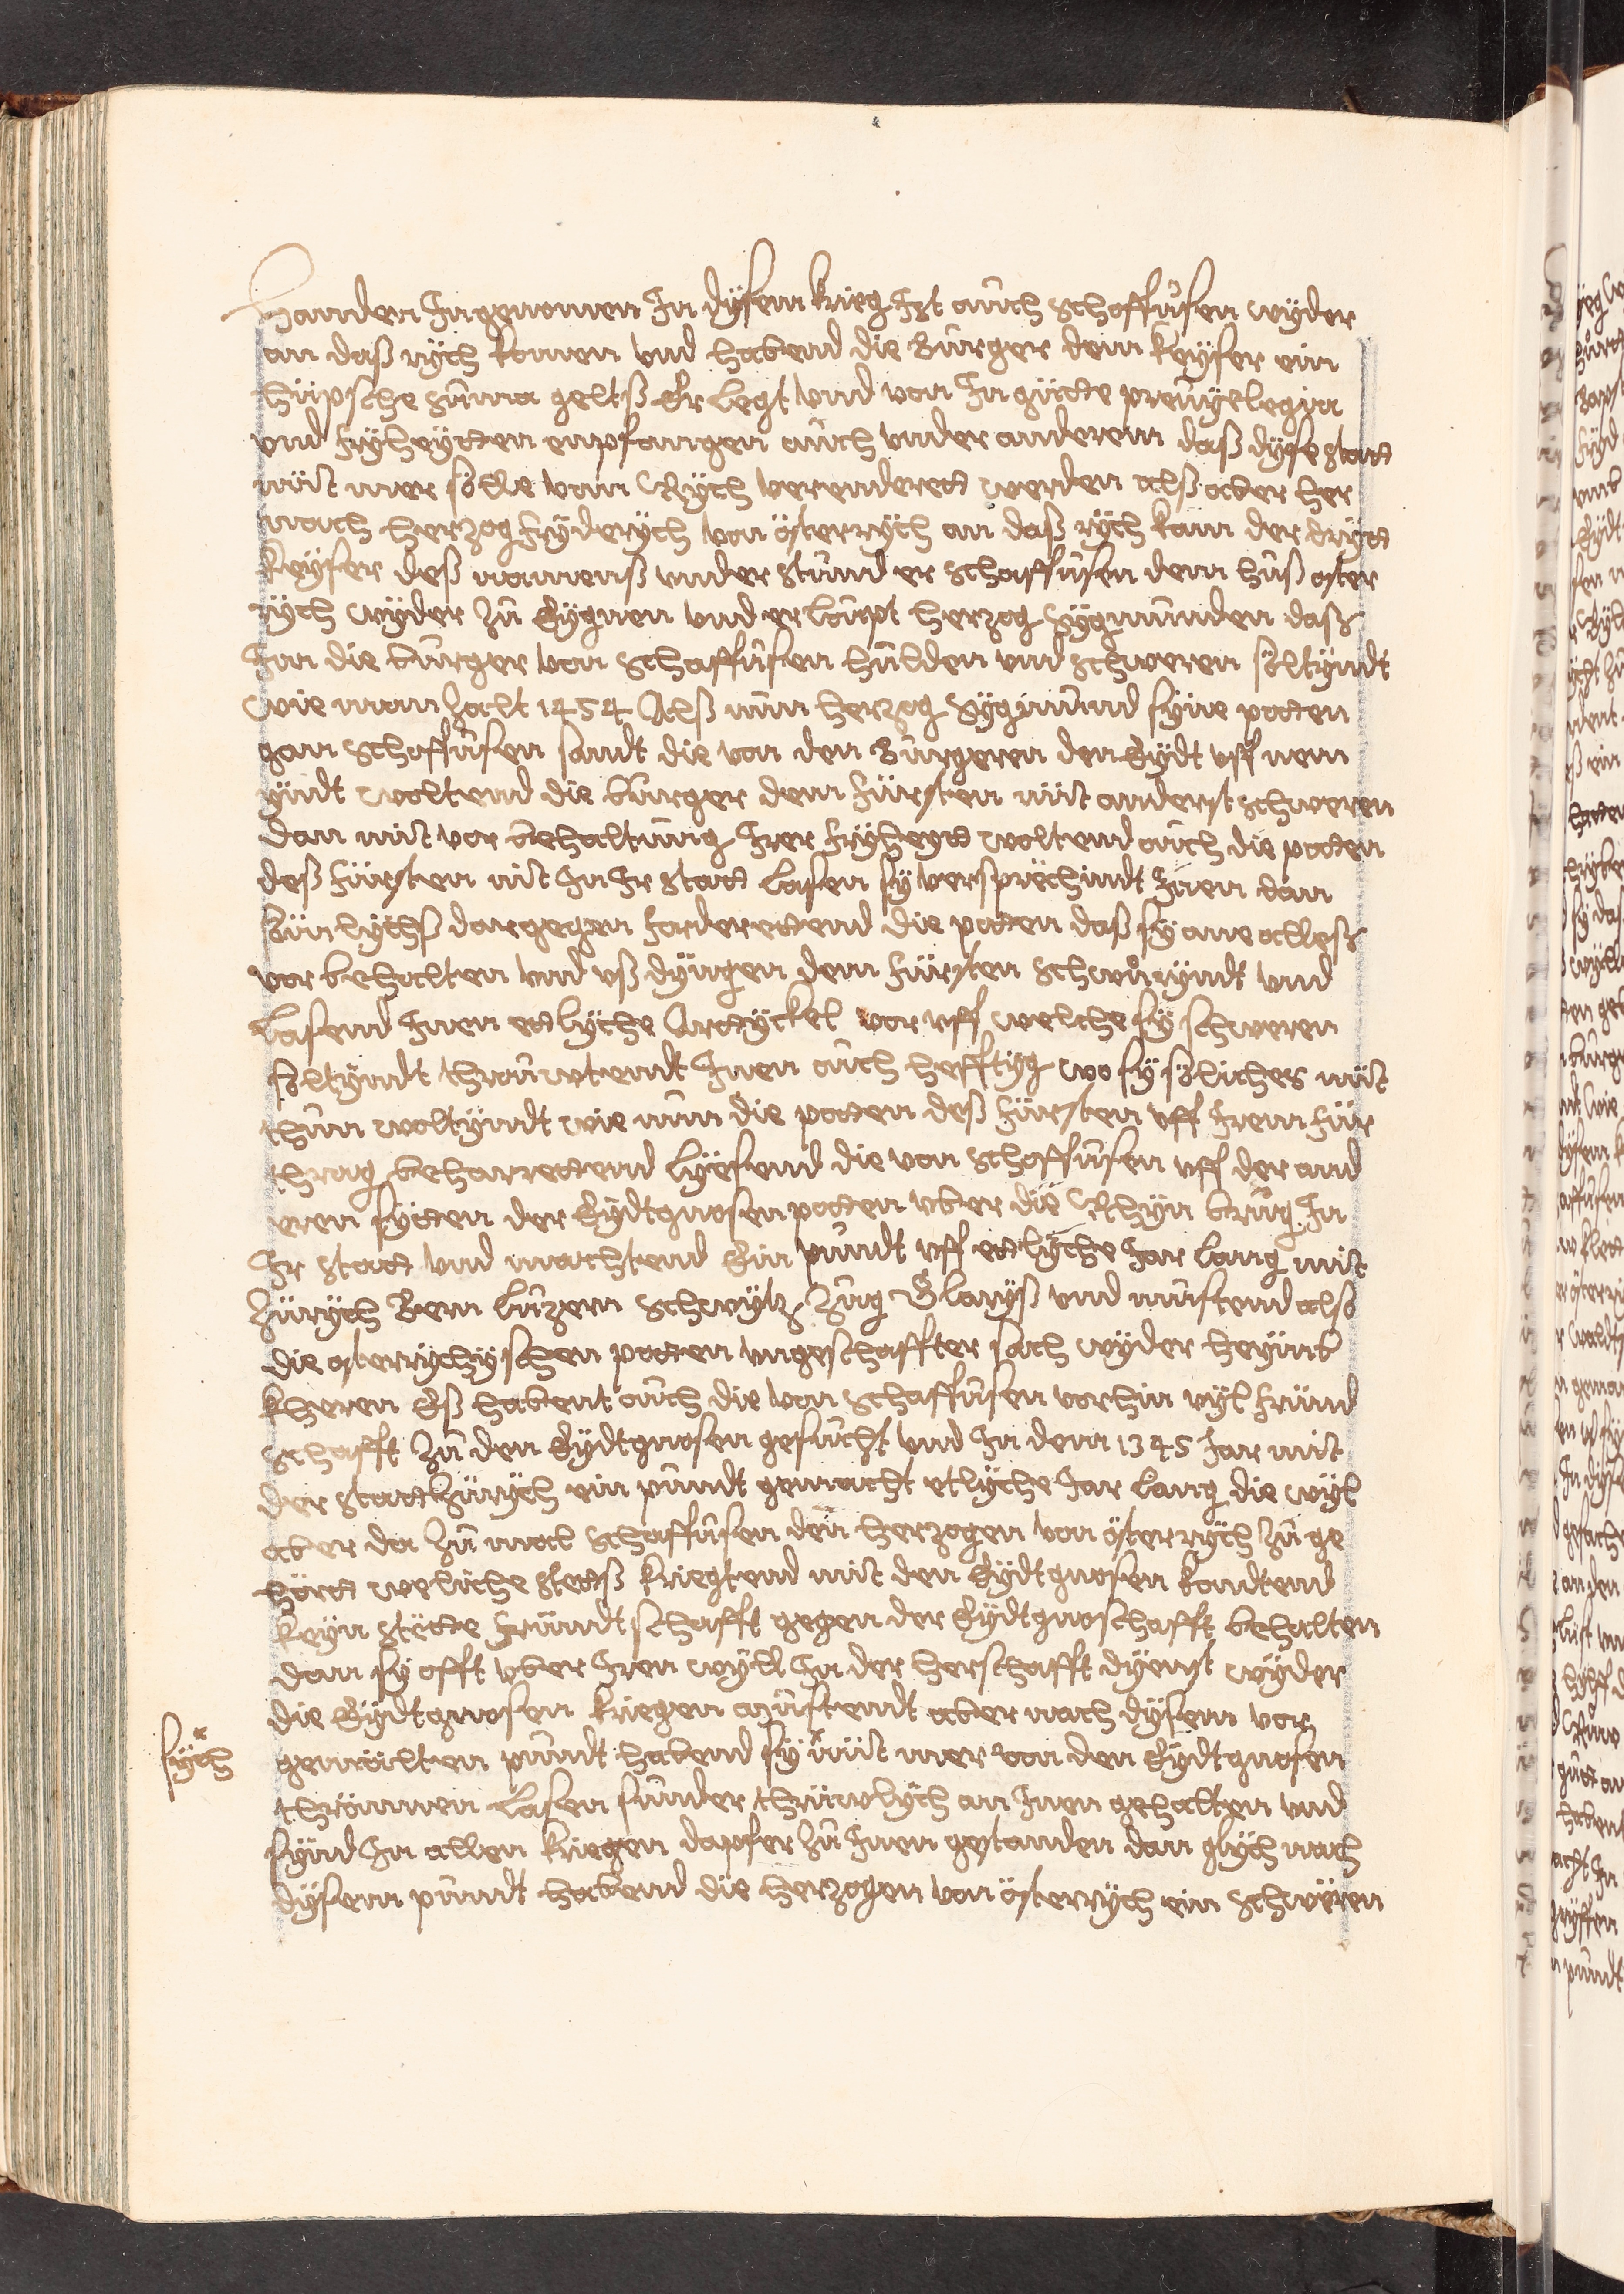 Handen Ingenomen In dÿsem krieg Ist auch Schoffusen wÿder
an daß rÿch komen vnd habend die Burger dem keÿser ein
hüpsche suma geltß Er legt vnd von In gutte prewÿlegia
vnd frÿheÿtten enpfangen auch vnder anderem daß dÿse statt
nüt mer sölle vom Rÿch verenderett werden alß aber her
nach herzog frÿderÿch von österrÿch an daß rÿch kam der drÿtt
keÿser deß namenß vnder stund er Schaffusen dem huß oster
rÿch wÿder zu Eÿgnen vnd erloupt herzog sÿgmunden daß
Im die burger von Schaffusen hulden vnd schweren söltÿndt
wie man zalt 1454 Alß nun herzog sÿgmund sÿne potten
gan Schoffusen sandt die von den Burgeren den Eÿdt vff nem
ÿndt woltend die burger dem fürsten nüt anderst schweren
dan mit vor behaltung Irer frÿheÿtt woltend auch die potten
deß fürsten nit In Ir statt lasen sÿ versprëchindt Inen dan
sömlÿchß dargegen forderettend die potten daß sÿ ane alleß
vor behalten vnd vß dÿngen dem fürsten schwurÿndt vnd
lasend Inen ettlÿche Arttÿckel vor vff welche sÿ schweren
söltÿndt thröuwtendt Inen auch hefftÿg wo sÿ söliches nüt
thun woltÿndt wie nun die potten deß fürsten vff Irem für
thrag beharrettend lÿesend die von Schoffusen vff der and
eren sÿtten der Eÿdtgnosen potten vber die Rhÿn brug In
Ir statt vnd machtend Ein pundt vff ettlÿche Jar lang mit
Zürÿch Bern luzern Schwÿtz Zug Glaryß vnd mustend also
die osterrÿchÿschen potten vngeschaffter sach wÿder heÿmb
kheren Eß habent auch die von Schaffusen vorhin vÿl fründ
schafft zu den Eÿdtgnosen gesucht vnd In dem 1345 Jar mit
der statt Zürÿch ein pundt gemacht etlÿche Jar lang die wÿl
aber da zu mal Schaffusen den herzogen von österrÿch zu ge
hörtt weliche stettß kriegtend mit den Eÿdtgnosen kondtend
keÿn stëtte fründtschafft gegen der Eÿdtgnoschafft behalten
dan sÿ offt vber Iren wÿll In der herschafft dÿenst wÿder
die Eÿdtgnosen kriegen mustendt aber nach dÿsem vor
gemälten pundt habend sÿ nüt mer von den Eÿdtgnosen
sÿch
thrönnen lasen sunder thrüwlÿch an Inen gehalten vnd
sÿnd In allen kriegen dapfer zu Inen gestanden dan glÿch nach
dÿsem pundt habend die herzogen von österrÿch ein schwëren